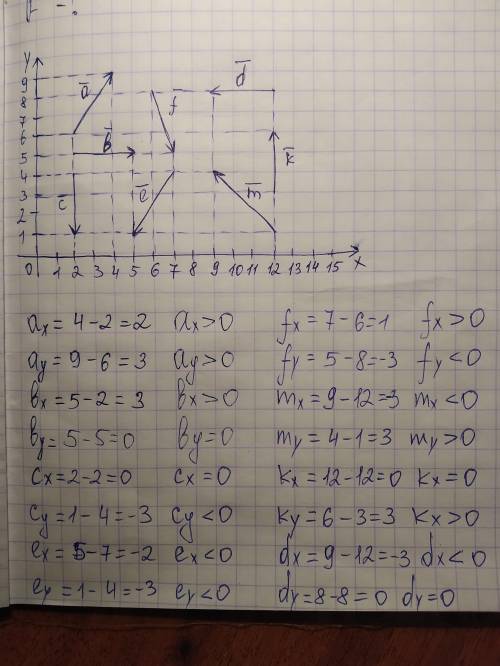 y
9
8
7
6
5
4
3
2
1
0 1 2 3 4 5 6 7 8 9 10 11 12 13 14 15 x
a
b
c
e
f
d
k
m
ax = 4-2=2 ax>0 fx = 7-6=1 fx>0
ay = 9-6=3 ay>0 fy = 5-8=-3 fy<0
вx = 5-2=3 вx>0 mx = 9-12=-3 mx<0
вy = 5-5=0 вy=0 my = 4-1=3 my>0
cx = 2-2=0 cx=0 kx = 12-12=0 kx=0
cy = 1-4=-3 cy<0 ky = 6-3=3 kx>0
ex = 5-7=-2 ex<0 dx = 9-12=-3 dx<0
ey = 1-4=-3 ey<0 dy = 8-8=0 dy=0